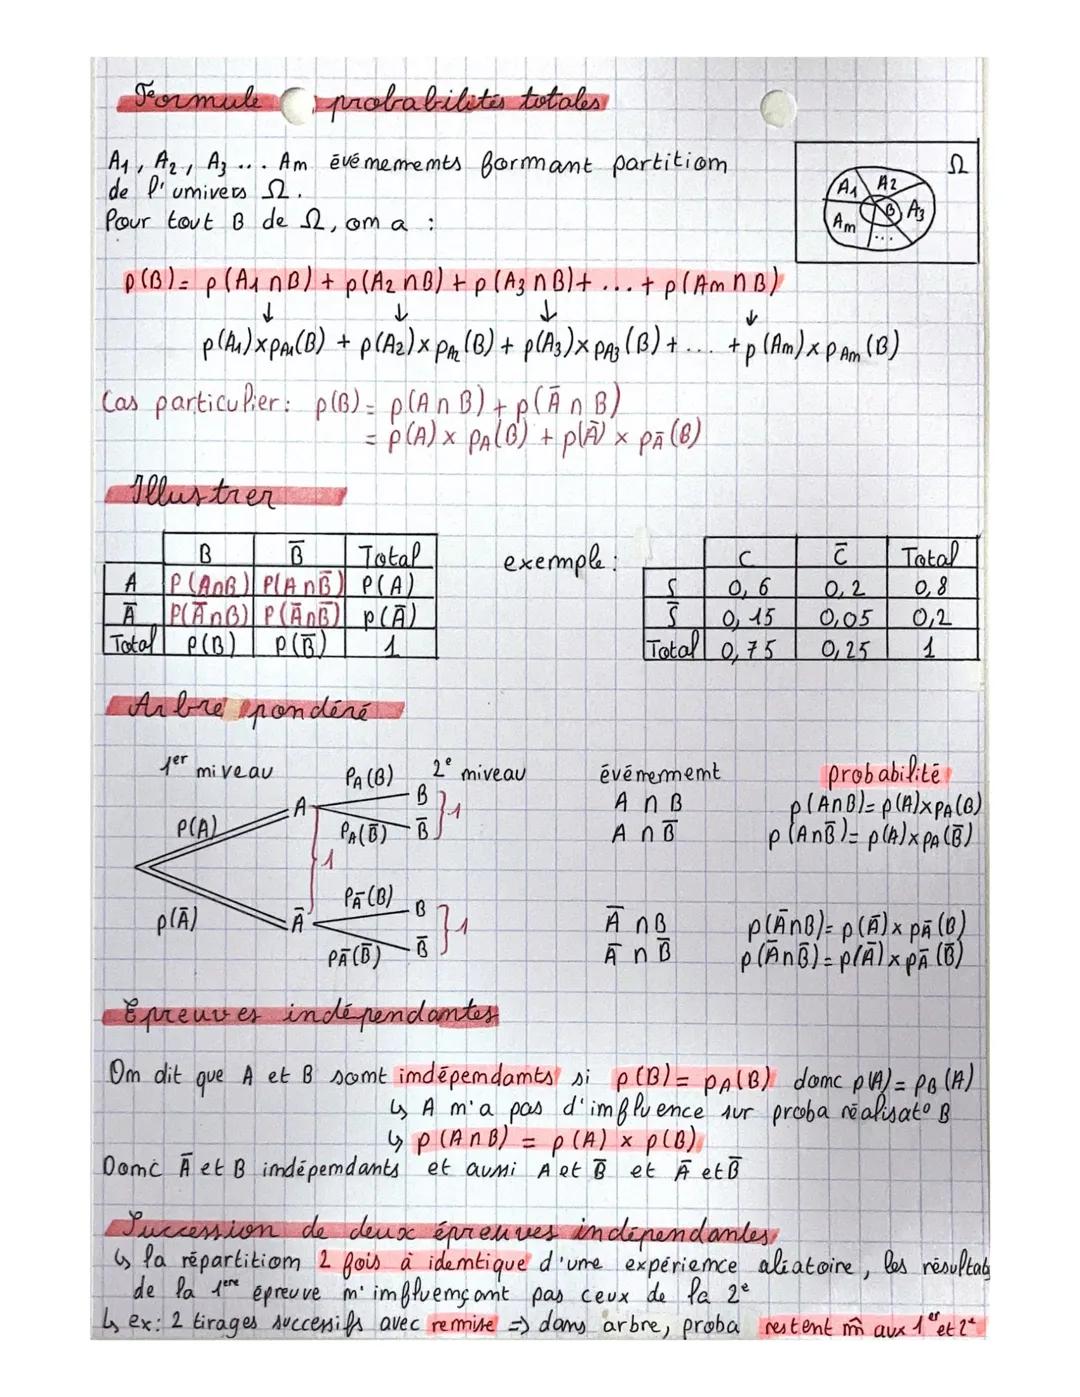 Formule probabilités totales
A1, A2, A3 ... Am événements formant partition
de l'univers Ω.
Pour tout B de Ω, on a :
Ω
A1 A2
B A3
Am ...
p(B) = p(A1 ∩ B) + p(A2 ∩ B) + p(A3 ∩ B) + ... + p(Am ∩ B)
↓ ↓ ↓ ↓
p(A1) x pA1(B) + p(A2) x pA2(B) + p(A3) x pA3(B) + ... + p(Am) x pAm(B)
Cas particulier : p(B) = p(A ∩ B) + p(Ā ∩ B)
= p(A) x pA(B) + p(Ā) x pĀ(B)
Illustrer
B B̄ Total
A P(A∩B) P(A∩B̄) P(A)
Ā P(Ā∩B) P(Ā∩B̄) p(Ā)
Total P(B) P(B̄) 1
exemple :
C C̄ Total
S 0,6 0,2 0,8
S̄ 0,15 0,05 0,2
Total 0,75 0,25 1
Arbre pondéré
1er niveau PA(B) 2e niveau événement probabilité
P(A) A B A ∩ B p(A∩B) = p(A) x pA(B)
PA(B̄) B̄ 1 A ∩ B̄ p(A∩B̄) = p(A) x pA(B̄)
1
p(Ā) Ā PĀ(B) B Ā ∩ B p(Ā∩B) = p(Ā) x pĀ(B)
PĀ(B̄) B̄ 1 Ā ∩ B̄ p(Ā∩B̄) = p(Ā) x pĀ(B̄)
Epreuves indépendantes
On dit que A et B sont indépendants si p(B) = pA(B) donc p(A) = pB(A)
↳ A n'a pas d'influence sur proba réalisat° B
↳ p(A∩B) = p(A) x p(B)
Donc Ā et B indépendants et aussi A et B̄ et Ā et B̄
Succession de deux épreuves indépendantes
↳ la répartition 2 fois à identique d'une expérience aléatoire, les résultats
de la 1ere épreuve n'influençant pas ceux de la 2e
↳ ex: 2 tirages successifs avec remise => dans arbre, proba restent m̂ aux 1er et 2e